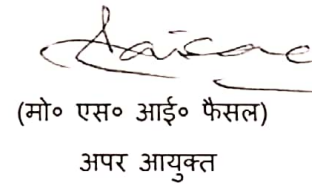 (मो० एस० आई० फैसल)
अपर आयुक्त